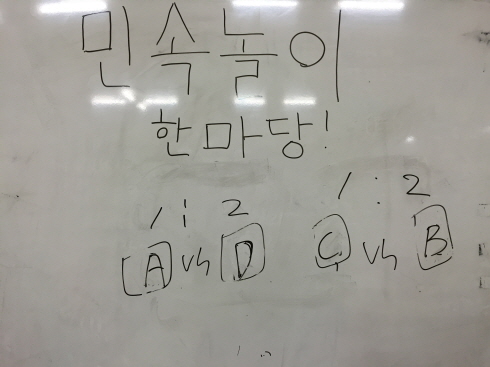 민속놀이
한마당!
1 : 2 1 : 2
A vs D C vs B